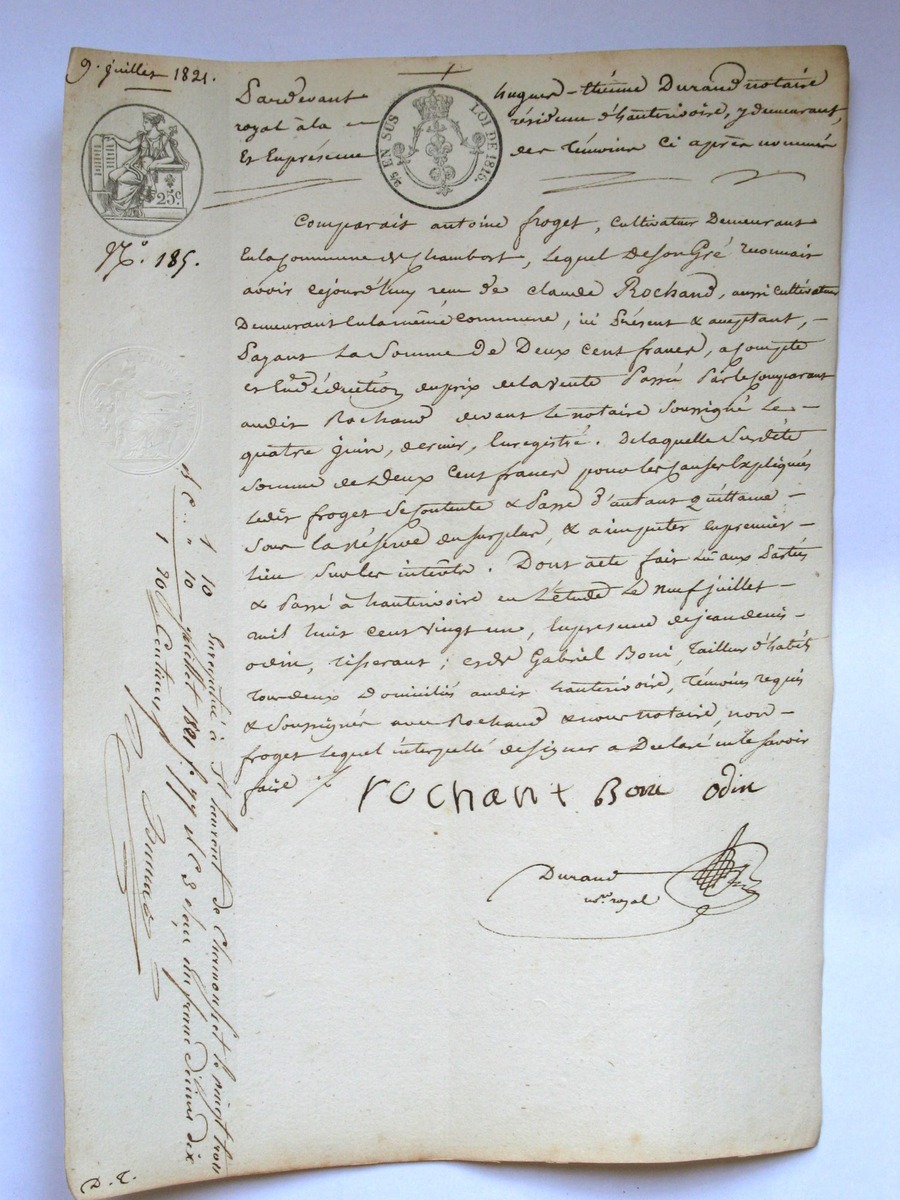 9. juillet 1821.
Pardevant hugues-thienne Durand notaire
royal à la résidence d'hauterivoire, y demeurant,
Et En présence des témoins ci après nommés
25 EN SUS LOI DE 1816.
25c.
N.º 185.
Comparait antoine froget, cultivateur Demeurant
En la Commune de Chambost, lequel De son Gré reconnait
avoir cejourd'huy reçu de claude Rochand, aussi cultivateur
Demeurant En la même commune, ici Présent & acceptant,
Payant La Somme De Deux cent francs, a compte
et En déduction du prix de la vente Passée Par le comparant
audit Rochand devant le notaire soussigné Le
quatre juin, dernier, Enregistré. De laquelle Susdite
somme de Deux Cent francs pour les causes Expliquées
ledit froget Se contente & Passe d'autant Quittance
Sous la réserve du surplus, & a imputer en premier
lieu Sur les intérêts. Dont acte fait Lu aux Parties
& Passé à hauterivoire en L'étude Le neuf juillet
mil huit cent vingt un, En présence de jean denis
odin, tisserant; et de Gabriel Boni, Tailleur d'habits
tous deux Domiciliés audit hauterivoire, témoins requis
& Soussignés avec Rochand & nous notaire, non
froget Lequel interpellé de signer a Déclaré ne le savoir
faire ./.
rochant Boni odin
Durand
nre. royal
Enregistré à St. laurent de Chamousset le vingt trois
juillet 1821 fo. 77 Vo. C. 3 reçu un franc décime dix
Centimes
1 10
" 10
1 20
D. T.